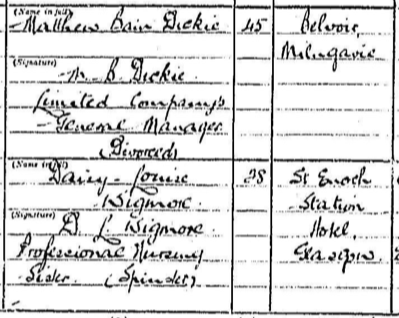 (Name in full)
Matthew Bain Dickie 45 Belvoir,
Milngavie
(Signature)
M. B. Dickie
Limited Company's
General Manager
(Divorced)
(Name in full)
Daisy Louise 38 St Enoch
Wigmore. Station
(Signature)
D. L. Wigmore. Hotel,
Professional Nursing Glasgow.
Sister (Spinster)